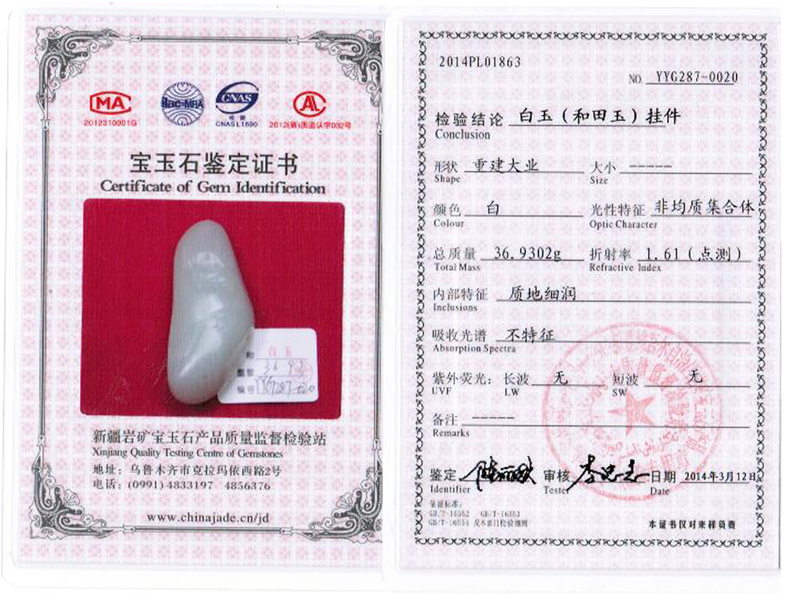 MA
2012310001G
ilac-MRA
CNAS
检测
CNAS L1690
AL
2012(新)质监认字002号
宝玉石鉴定证书
Certificate of Gem Identification
白玉
36.93
YYG287-0020
新疆岩矿宝玉石产品质量监督检验站
Xinjiang Quality Testing Centre of Gemstones
地址：乌鲁木齐市克拉玛依西路2号
电话：(0991) 4833197 4856376
www.chinajade.cn/jd
2014PL01863
NO. YYG287-0020
检验结论 白玉（和田玉）挂件
Conclusion
形状 重建大业 大小 -----
Shape Size
颜色 白 光性特征 非均质集合体
Colour Optic Character
总质量 36.9302g 折射率 1.61（点测）
Total Mass Refractive Index
内部特征 质地细润
Inclusions
吸收光谱 不特征
Absorption Spectra
紫外荧光： 长波 无 短波 无
UVF LW SW
备注 -----
Remarks
鉴定 审核 李忠志 日期 2014年3月12日
Identifier Tester Date
依据标准：
GB/T-16552 GB/T-16553
GB/T-16554 及本站门检验细则
本证书仅对来样负责